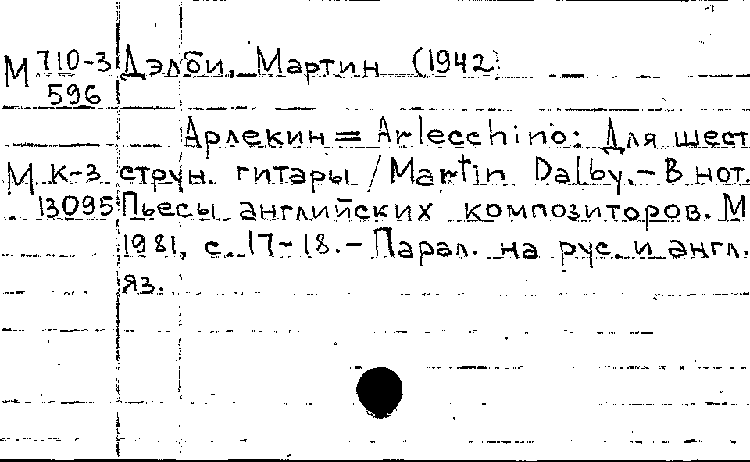 М 710-3 Дэлби, Мартин (1942
596
Арлекин = Arlecchino: Для шест
М К-3 струн. гитары / Martin Dalby. - В нот.
13095 Пьесы английских композиторов. М
1981, с. 17-18. - Парал. на рус. и англ.
яз.